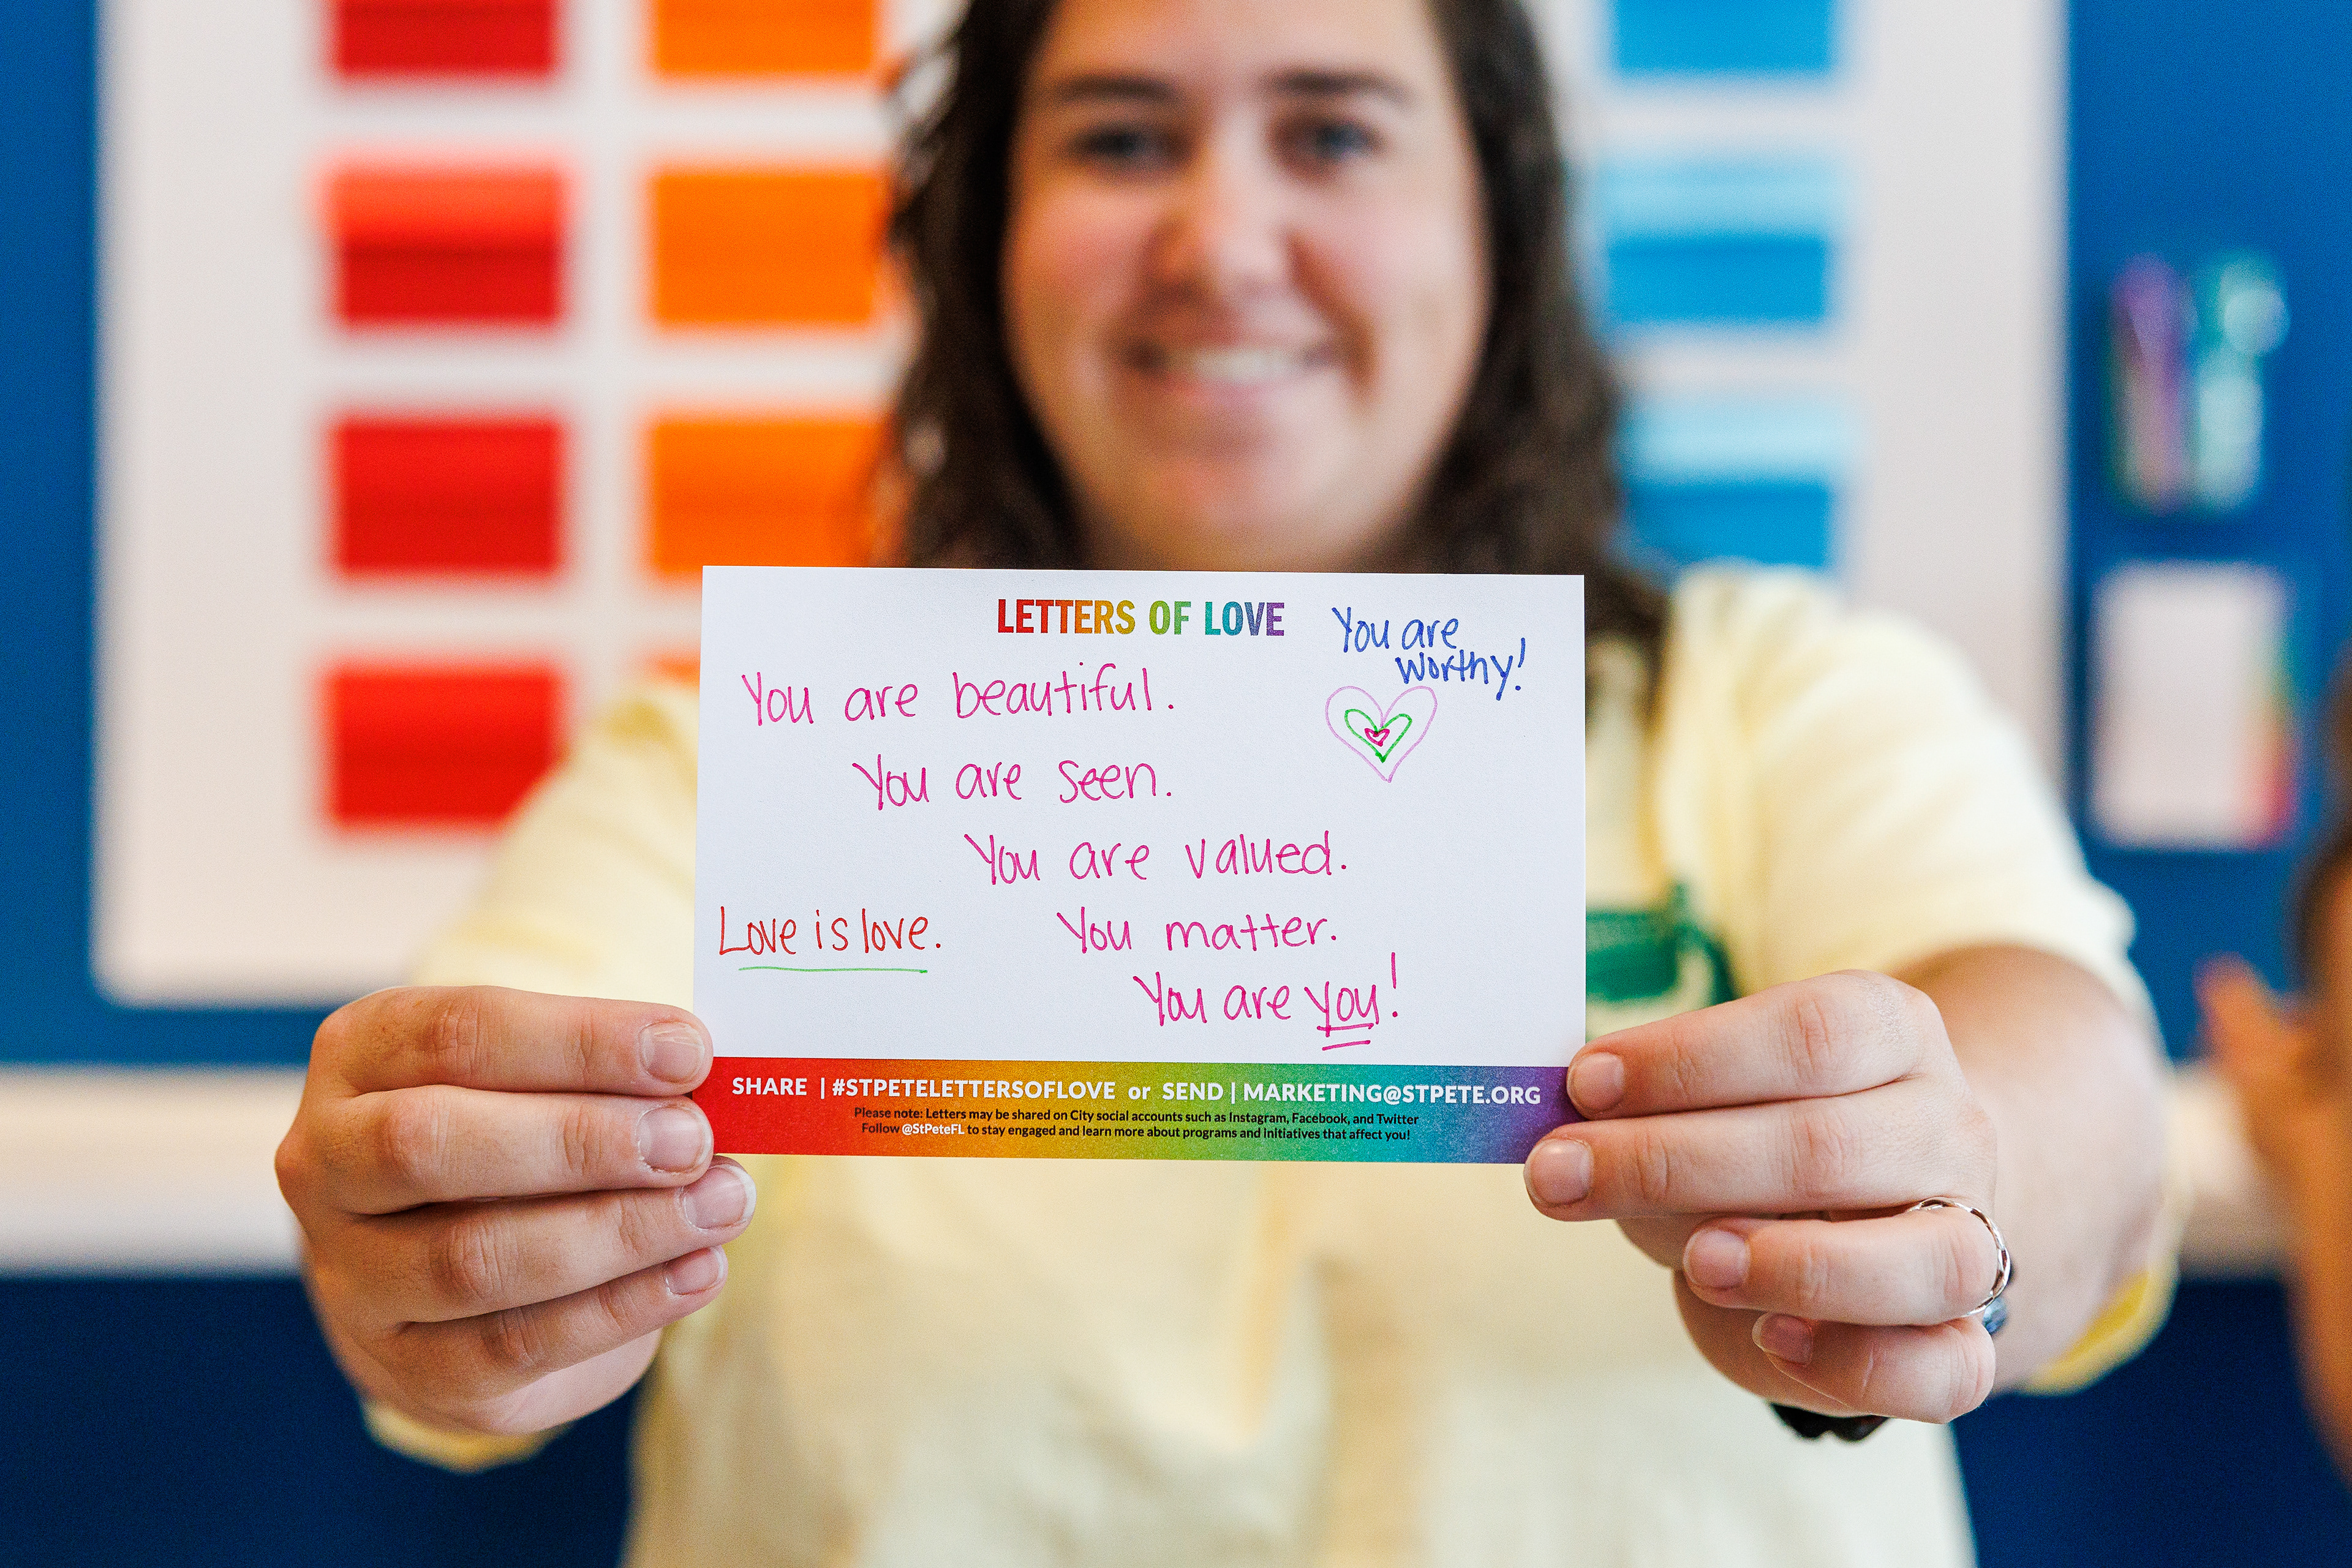 LETTERS OF LOVE
You are
worthy!
You are beautiful.
You are seen.
You are valued.
Love is love.
You matter.
You are you!
SHARE | #STPETELETTERSOFLOVE or SEND | MARKETING@STPETE.ORG
Please note: Letters may be shared on City social accounts such as Instagram, Facebook, and Twitter
Follow @StPeteFL to stay engaged and learn more about programs and initiatives that affect you!